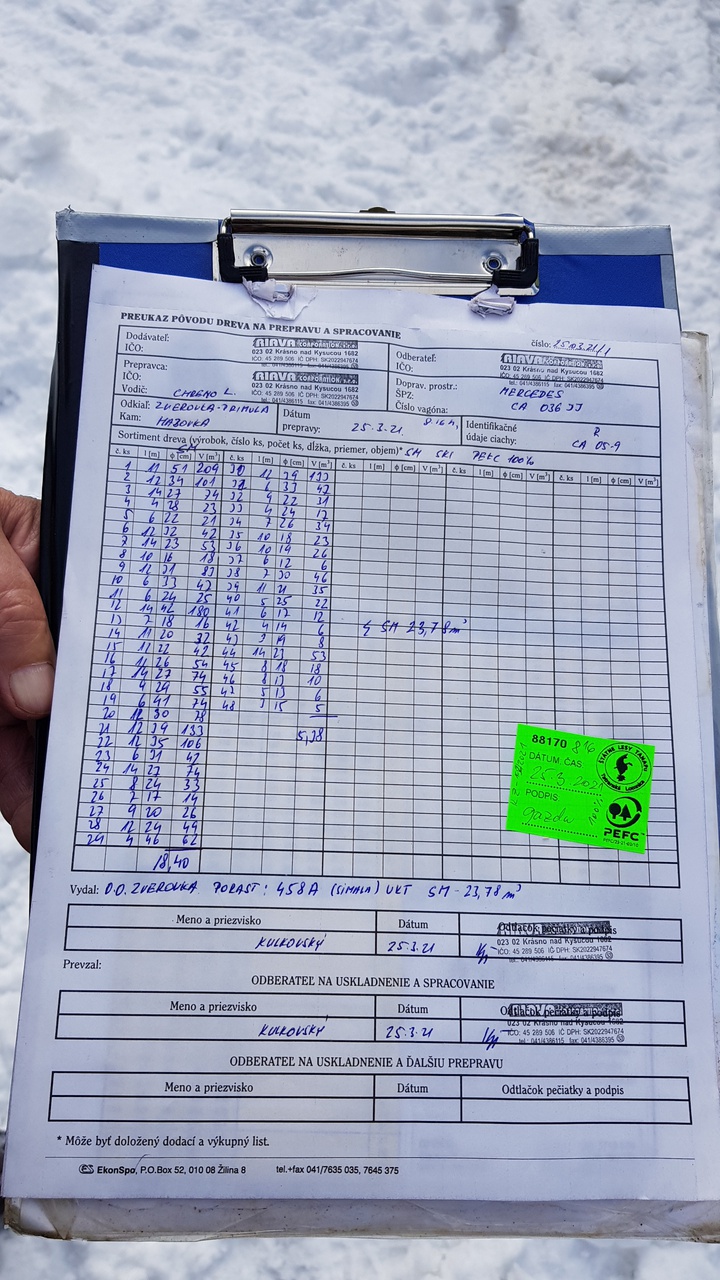 PREUKAZ PÔVODU DREVA NA PREPRAVU A SPRACOVANIE
číslo: 25.03.21/1
Dodávateľ:
IČO:
RIAVA CORPORATION
023 02 Krásno nad Kysucou 1682
IČO: 45 289 506 IČ DPH: SK2022947674
tel.: 041/4386115 fax: 041/4386395
Odberateľ:
IČO:
023 02 Krásno nad Kysucou 1682
IČO: 45 289 506 IČ DPH: SK2022947674
tel.: 041/4386115 fax: 041/4386395
Prepravca:
IČO:
RIAVA CORPORATION
023 02 Krásno nad Kysucou 1682
IČO: 45 289 506 IČ DPH: SK2022947674
tel.: 041/4386115 fax: 041/4386395
Vodič:
Doprav. prostr.: MERCEDES
ŠPZ: CA 036 JJ
Číslo vagóna:
Odkiaľ: ZVEROVKA-PRIMULA
Kam:
Dátum
prepravy: 25.3.21.
Identifikačné
údaje ciachy: R
CA 05-9
Sortiment dreva (výrobok, číslo ks, počet ks, dĺžka, priemer, objem)* SM SKI PEFC 100%
SM
č. ks l [m] ϕ [cm] V [m³] č. ks l [m] ϕ [cm] V [m³] č. ks l [m] ϕ [cm] V [m³] č. ks l [m] ϕ [cm] V [m³]
1 11 51 209 30 12 39 133
2 12 34 101
3 14 27 74
4 4 28 23
5 6 22 21 34 7 26 34
6 12 32 42 35 10 18 23
7 14 23 53 36 10 19 26
8 10 16 18 37 6 12 6
9 12 31 83 38 7 30 46
10 6 33 43 39 11 21 35
11 6 24 25 40 5 25 22
12 14 42 180 41 6 17 12
13 7 18 16 42 4 14 6
14 11 20 32 43 3 19 8
15 11 22 42 44 14 23 53
16 11 26 54 45 8 18 18
17 14 27 74 46 8 13 10
18 4 29 55 47 5 13 6
19 6 41 74 48 3 15 5
20 12 30 78
21 12 39 133
22 12 35 106
23 6 31 42
24 14 27 74
25 8 24 33
26 7 17 14
27 9 20 26
28 12 24 49
29 4 46 62
SM 23,78 m³
5,38
18,40
88170 816
ŠTÁTNE LESY TANAPU
DÁTUM, ČAS
25.3 2021
PODPIS
gazda
100%
PEFC
Vydal: O.O. ZVEROVKA PORAST: 458A (SIHALA) VKT SM - 23,78 m³
Meno a priezvisko Dátum Odtlačok pečiatky a podpis
KULKOVSKÝ 25.3.21
023 02 Krásno nad Kysucou 1682
IČO: 45 289 506 IČ DPH: SK2022947674
tel.: 041/4386115 fax: 041/4386395
Prevzal:
ODBERATEĽ NA USKLADNENIE A SPRACOVANIE
Meno a priezvisko Dátum Odtlačok pečiatky a podpis
KULKOVSKÝ 25.3.21
023 02 Krásno nad Kysucou 1682
IČO: 45 289 506 IČ DPH: SK2022947674
tel.: 041/4386115 fax: 041/4386395
ODBERATEĽ NA USKLADNENIE A ĎALŠIU PREPRAVU
Meno a priezvisko Dátum Odtlačok pečiatky a podpis
* Môže byť doložený dodací a výkupný list.
ES EkonSpo, P.O.Box 52, 010 08 Žilina 8 tel.+fax 041/7635 035, 7645 375